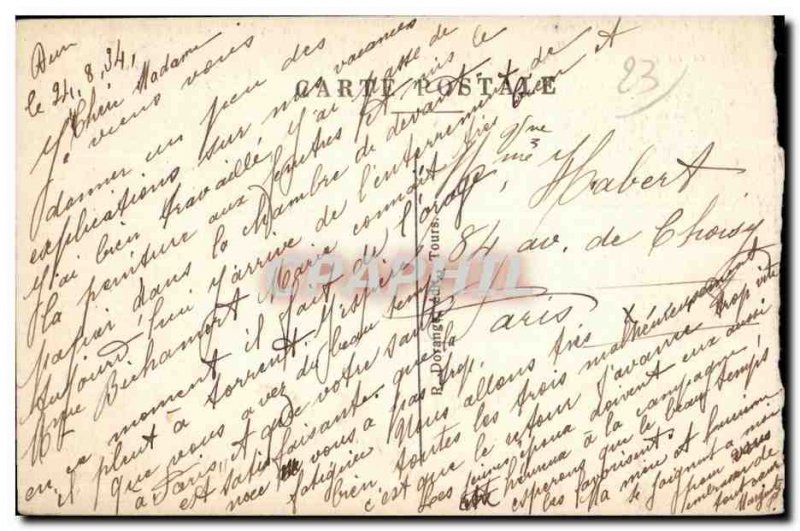 le 24.8.34,
Chère Madame
Je viens vous
donner un peu des
explications sur nos vacances
J'ai bien travaillé, J'ai passé de
la peinture aux fenêtres et mis le
papier dans la chambre de devant
Aujourd'hui J'arrive de l'enterrement de
Mme Marie connait très bien et
en ce moment il fait de l'orage
il pleut à torrent. J'espère
que vous avez du beau temps
à Paris, et que votre santé
est satisfaisante. que la
noce ne vous a pas
fatiguée trop.
Nous allons très
bien toutes les trois malheureusement
c'est que le retour s'avance trop vite
Les jeunes époux doivent eux aussi
être heureux à la campagne,
esperons que le beau temps
les favorisent.
Ma mère et
se joignent à moi
pour vous
CARTE POSTALE
23
Mme Habert
84 av. de Choisy
Paris
Tours.
CPAPHIL